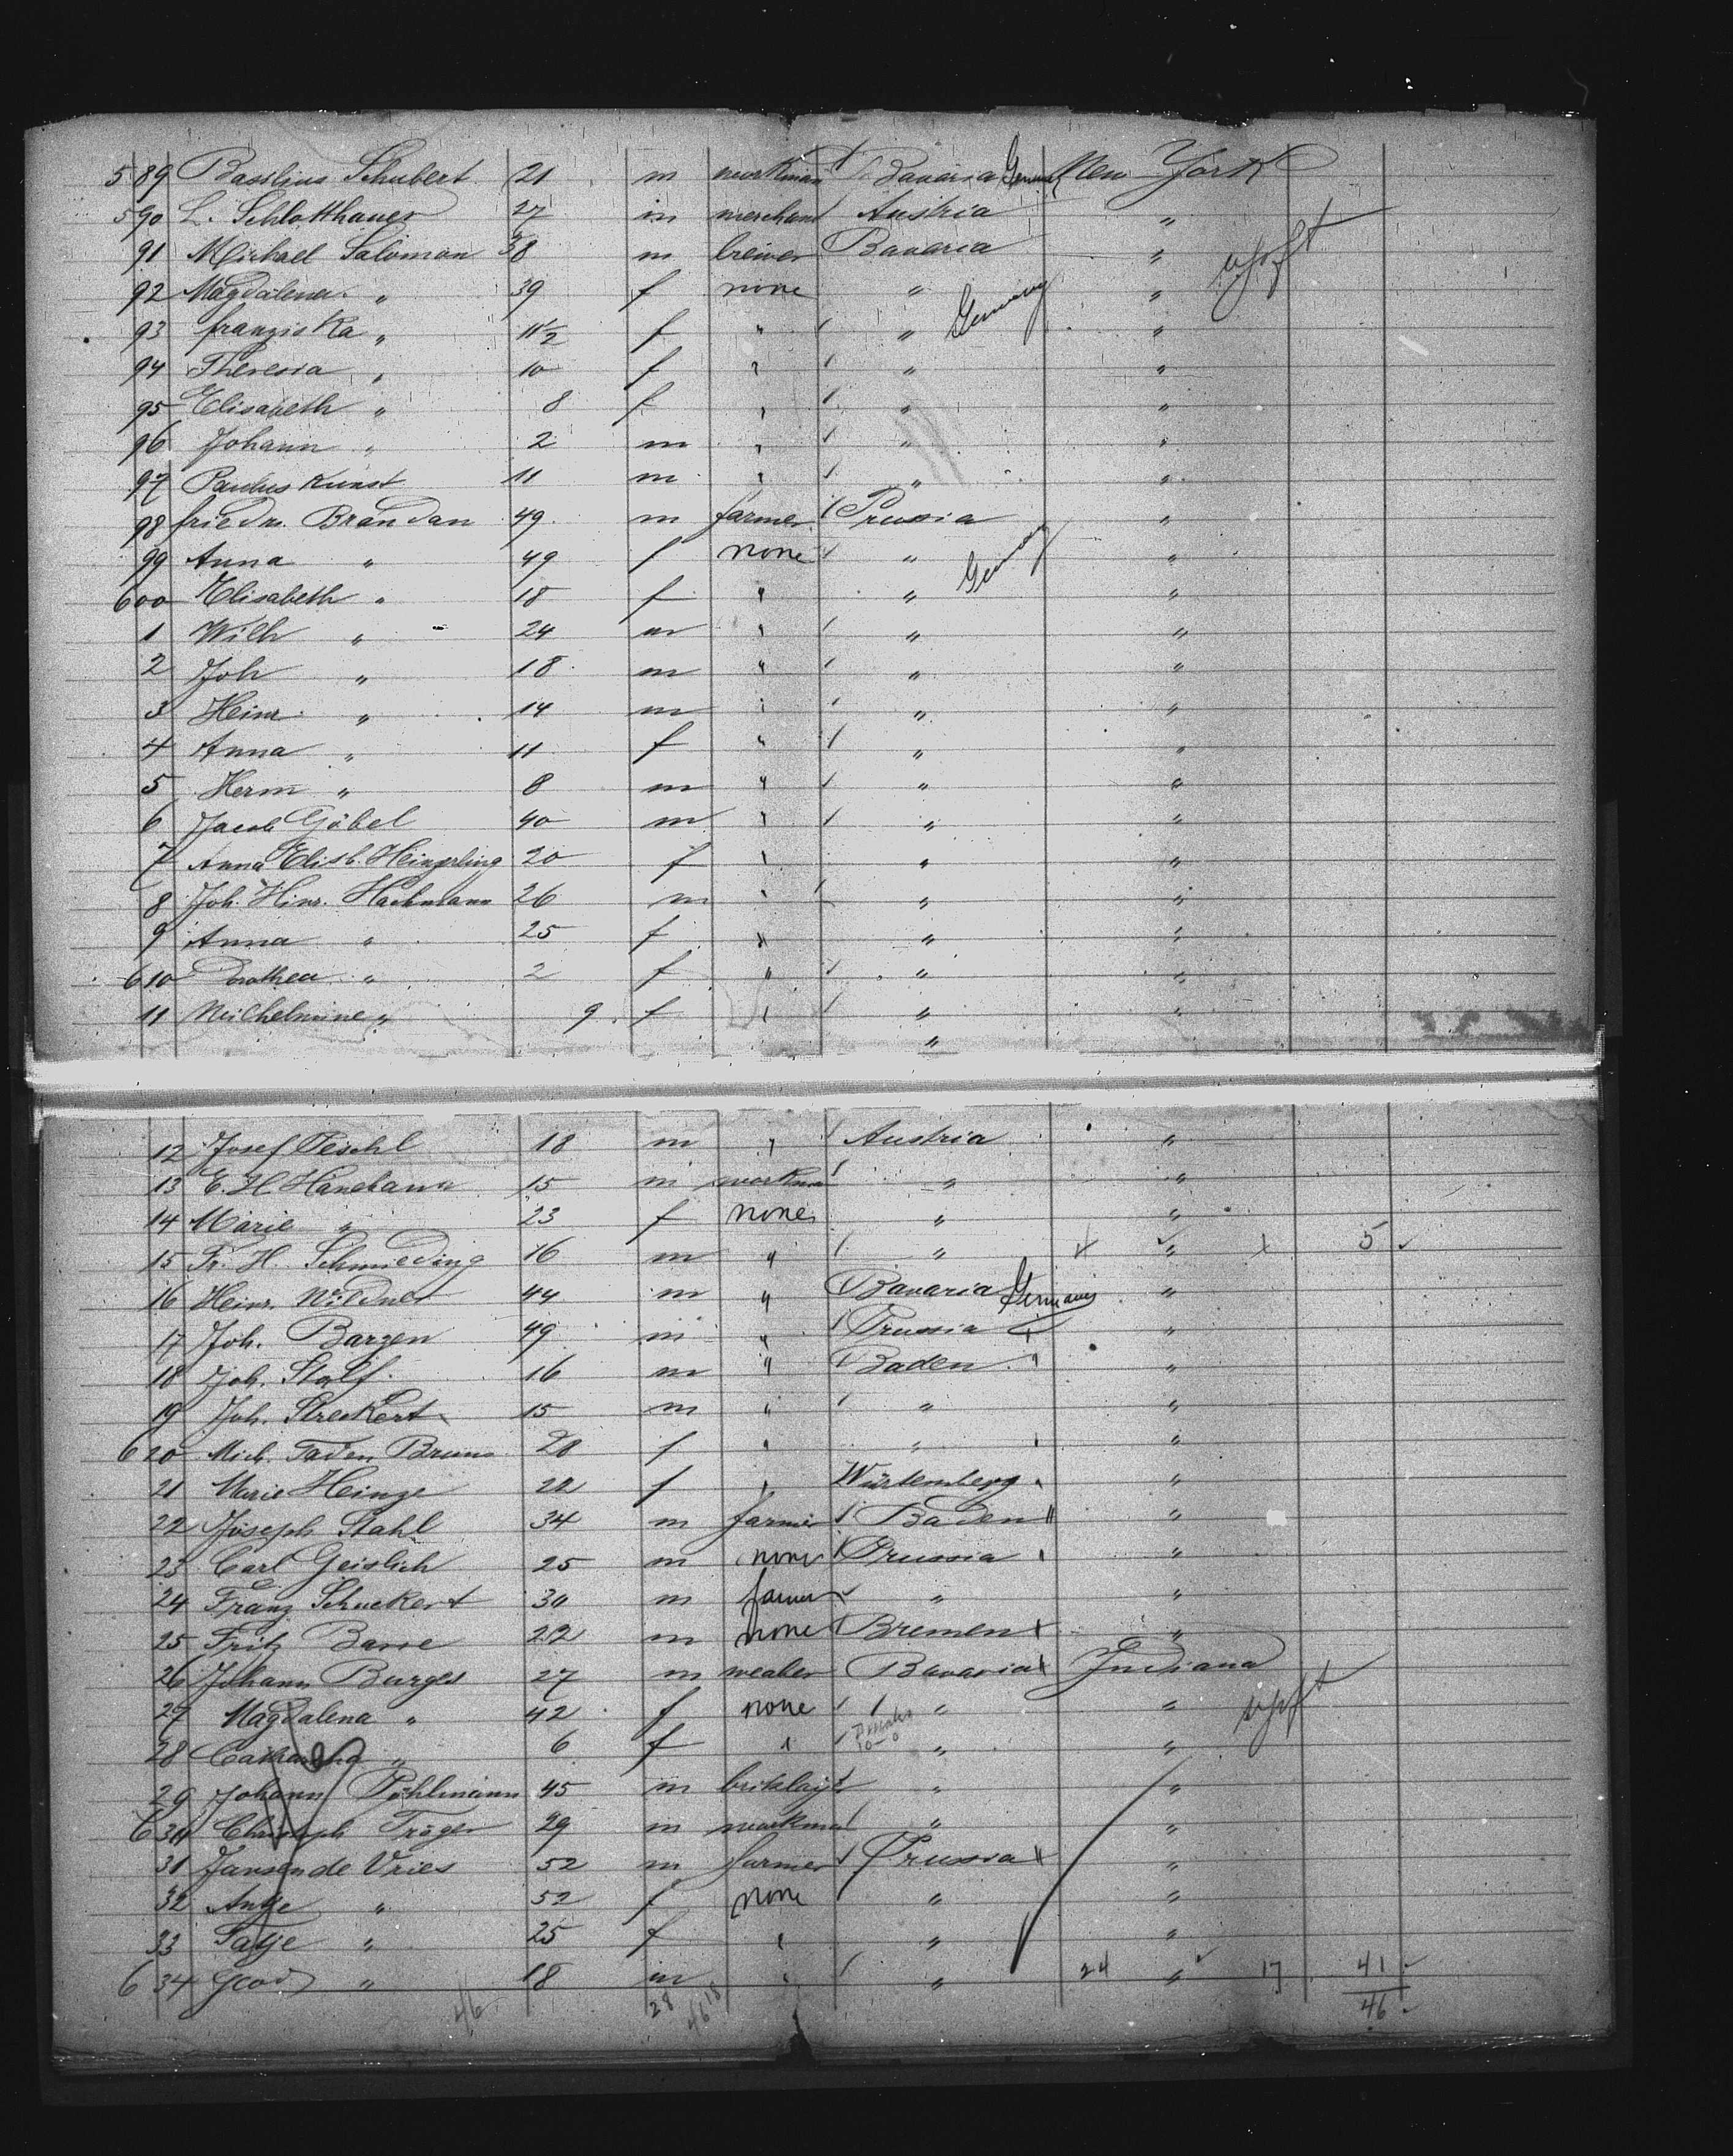 589 Basilius Schubert 21 m workman Bavaria Germany New York
590 L. Schlotthauer 27 m merchant Austria "
91 Michael Saloman 38 m brewer Bavaria "
92 Magdalena " 39 f none " "
93 franziska " 11 1/2 f " " Germany "
94 Theresia " 10 f " " "
95 Elisabeth " 8 f " " "
96 Johann " 2 m " " "
97 Paulus Kunst 11 m " " "
98 friedr. Brandan 49 m farmer Prussia "
99 Anna " 49 f none " "
600 Elisabeth " 18 f " " Germany "
1 Wilh " 24 m " " "
2 Joh " 18 m " " "
3 Heinr. " 14 m " " "
4 Anna " 11 f " " "
5 Herm " 8 m " " "
6 Jacob Göbel 40 m " " "
7 Anna Elisb. Heinzerling 20 f " " "
8 Joh. Hinr. Hachmann 26 m " " "
9 Anna " 25 f " " "
610 Dorothea " 2 f " " "
11 Wilhelmine " 9 f " " "
"
12 Josef Peschl 18 m " Austria "
13 E. H. 15 m workman " "
14 Marie " 23 f none " "
15 Fr. H. Schmieding 16 m " " " 1 5
16 Heinr. Wildner 44 m " Bavaria Germany "
17 Joh. Barzen 49 m " Prussia "
18 Joh. Stolf 16 m " Baden " "
19 Joh. Streckert 15 m " " "
620 Mich. Taden Bruns 28 f " " "
21 Marie Heinze 22 f " Würtemberg "
22 Joseph Stahl 34 m farmer Baden " "
23 Carl Geislich 25 m none Prussia "
24 Franz Schuckert 30 m farmer " "
25 Fritz Basse 22 m none Bremen "
26 Johann Burges 27 m weaber Bavaria Indiana
27 Magdalena " 42 f none " "
28 Catharina " 6 f " " "
29 Johann Pöhlmann 45 m briklayer " "
630 Christoph Tröger 29 m workman " "
31 Jansen de Vries 52 m farmer Prussia "
32 Antje " 52 f none " "
33 Tatje " 25 f " " "
634 " 18 m " " 24 " 17 41
46 28 18 46 46